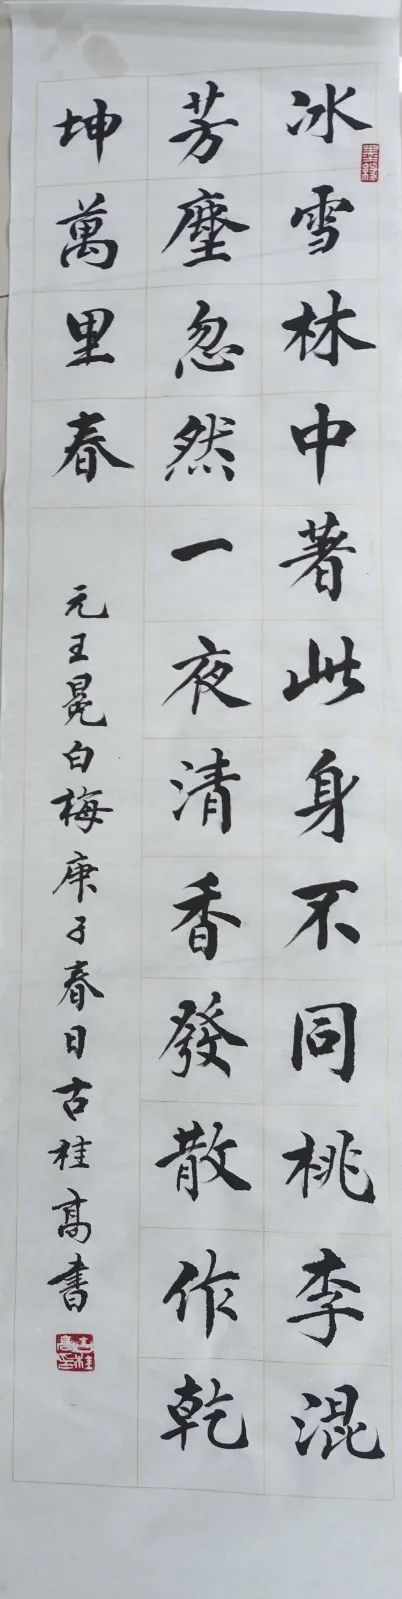 冰雪林中著此身不同桃李混
芳塵忽然一夜清香發散作乾
坤萬里春
元王冕白梅庚子春日古桂高書
墨緣
古桂高印